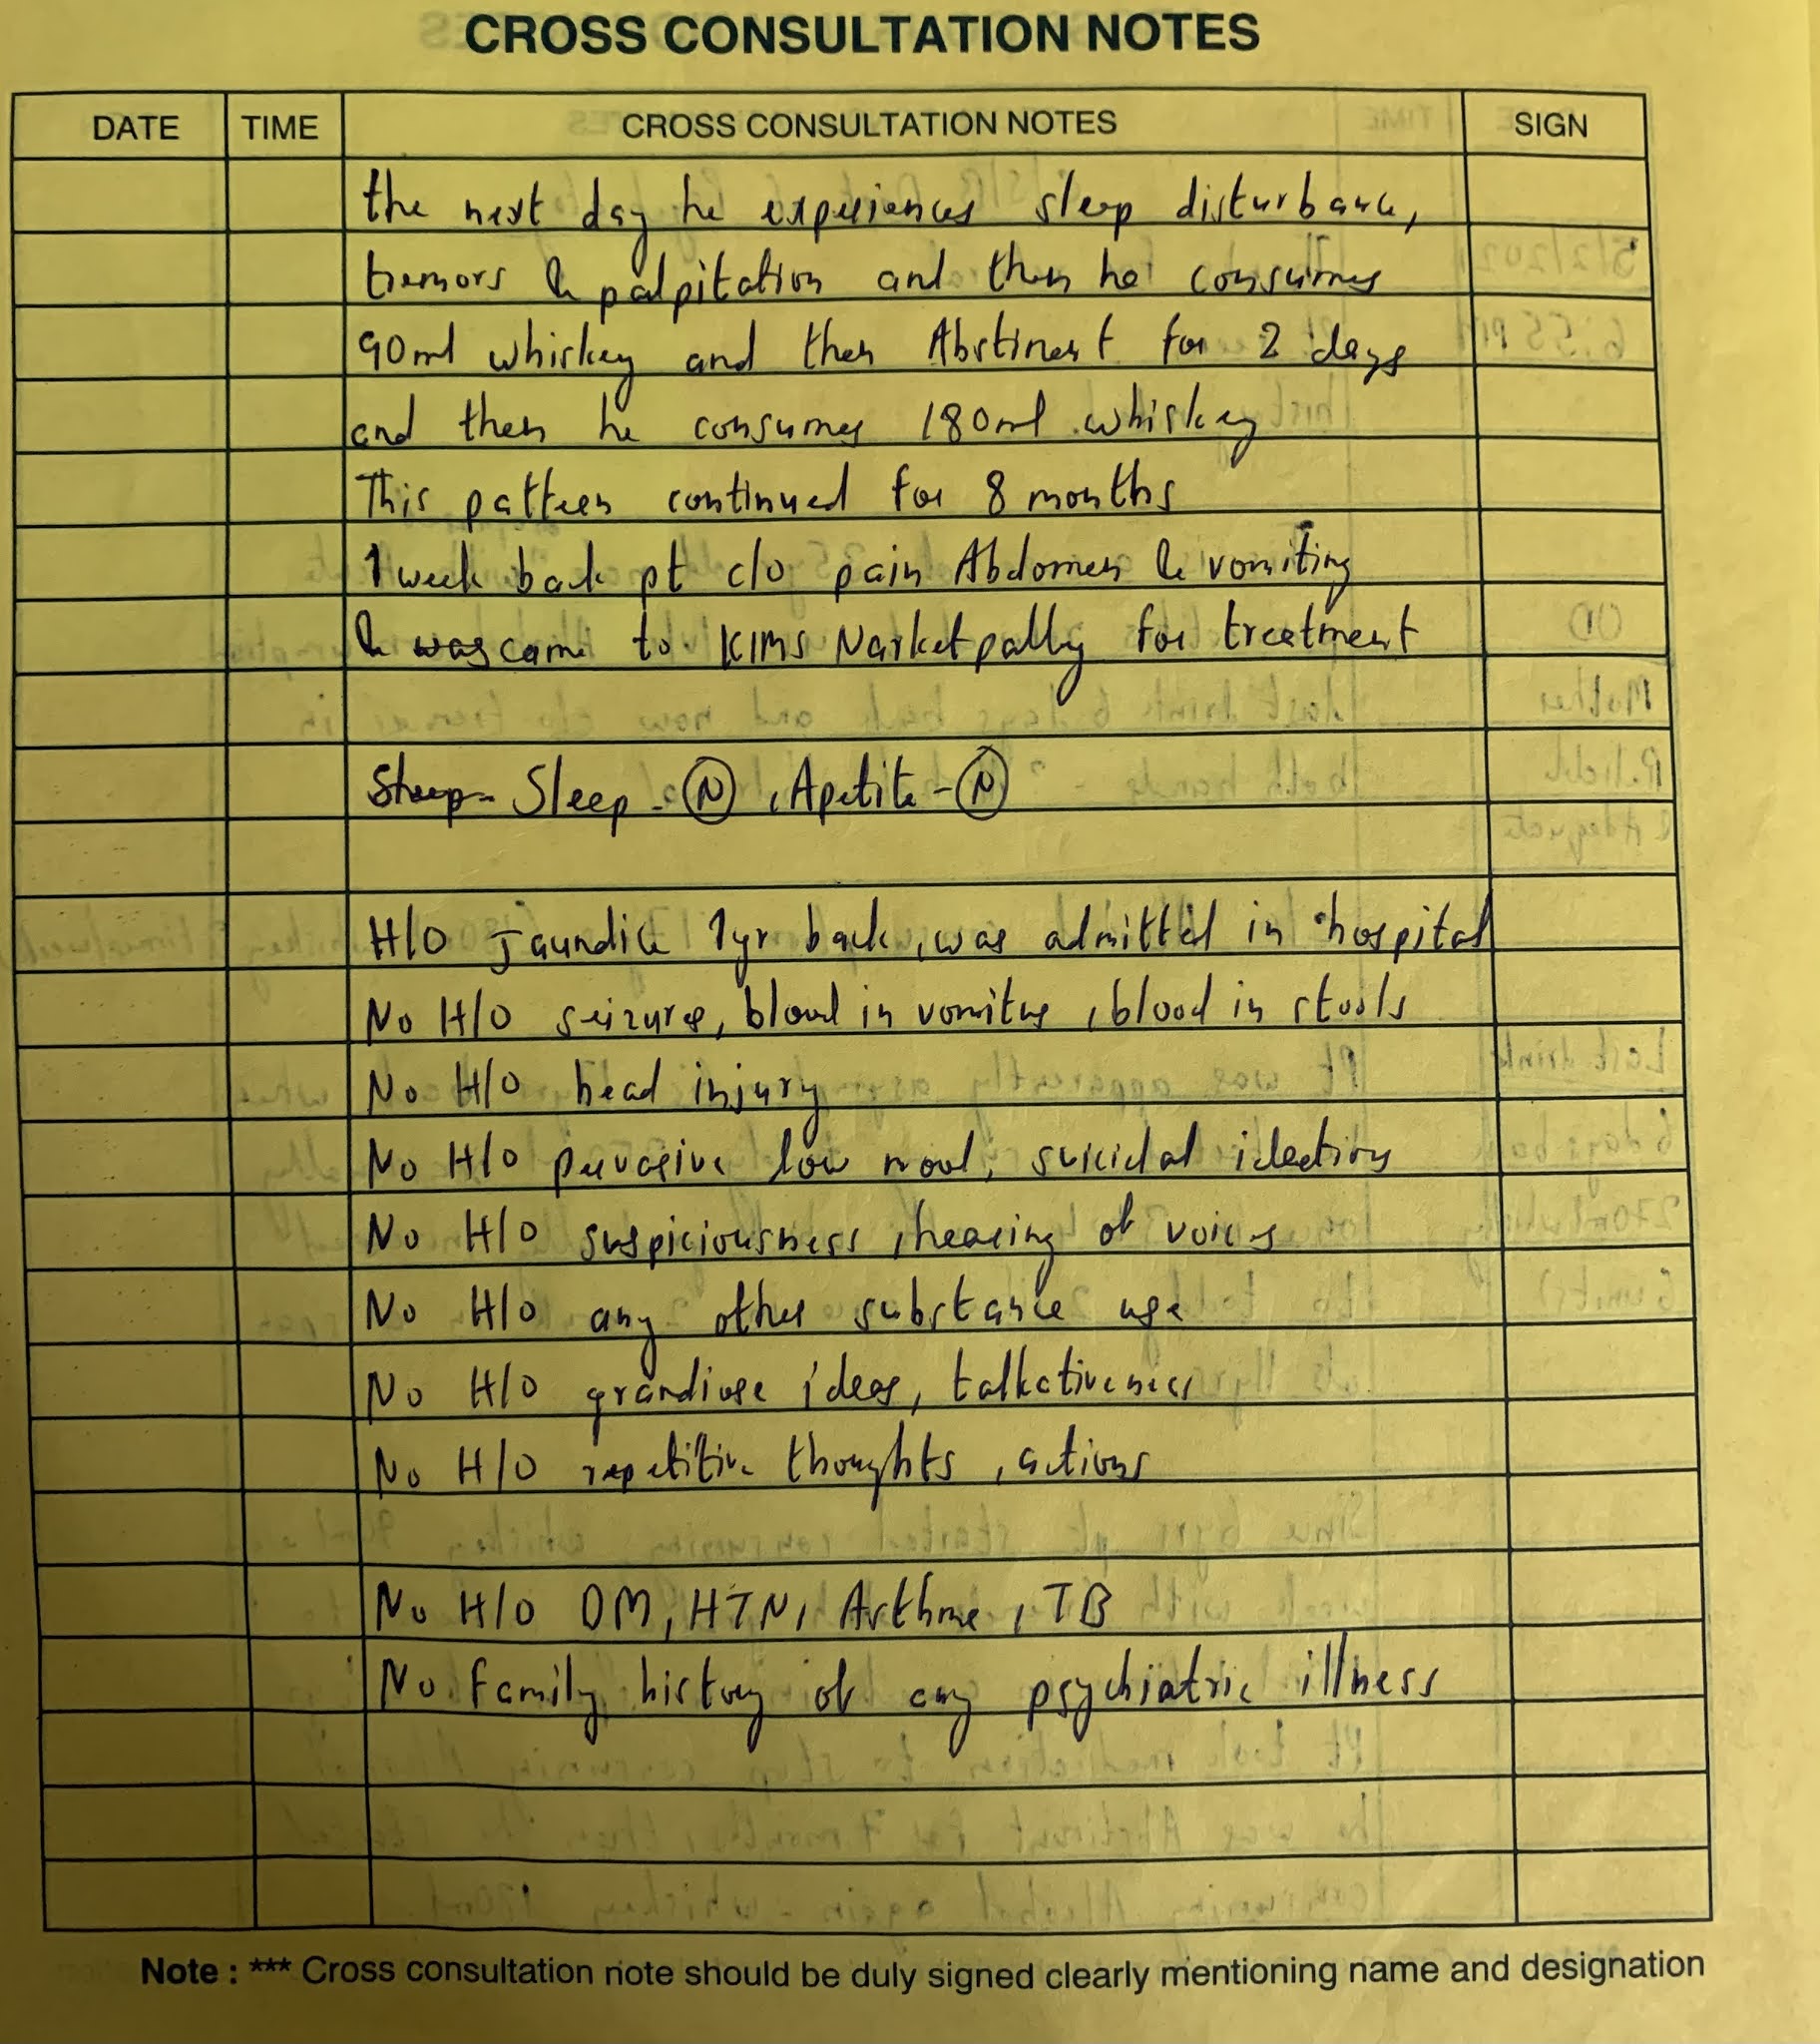 CROSS CONSULTATION NOTES
DATE TIME CROSS CONSULTATION NOTES SIGN
the next day he experiences sleep disturbance,
tremors & palpitation and then he consumes
90ml whiskey and then Abstinent for 2 days
and then he consumes 180ml whiskey
This pattern continued for 8 months
1 week back pt c/o pain Abdomen & vomiting
& was came to KIMS Narketpally for treatment
Sleep - Sleep - N , Apetite - N
H/O Jaundice 1yr back, was admitted in hospital
No H/O seizures, blood in vomitus, blood in stools
No H/O head injury
No H/O pervasive low mood, suicidal ideations
No H/O suspiciousness, hearing of voices
No H/O any other substance use
No H/O grandiose ideas, talkativeness
No H/O repetitive thoughts, actions
No H/O DM, HTN, Asthma, TB
No family history of any psychiatric illness
Note : *** Cross consultation note should be duly signed clearly mentioning name and designation